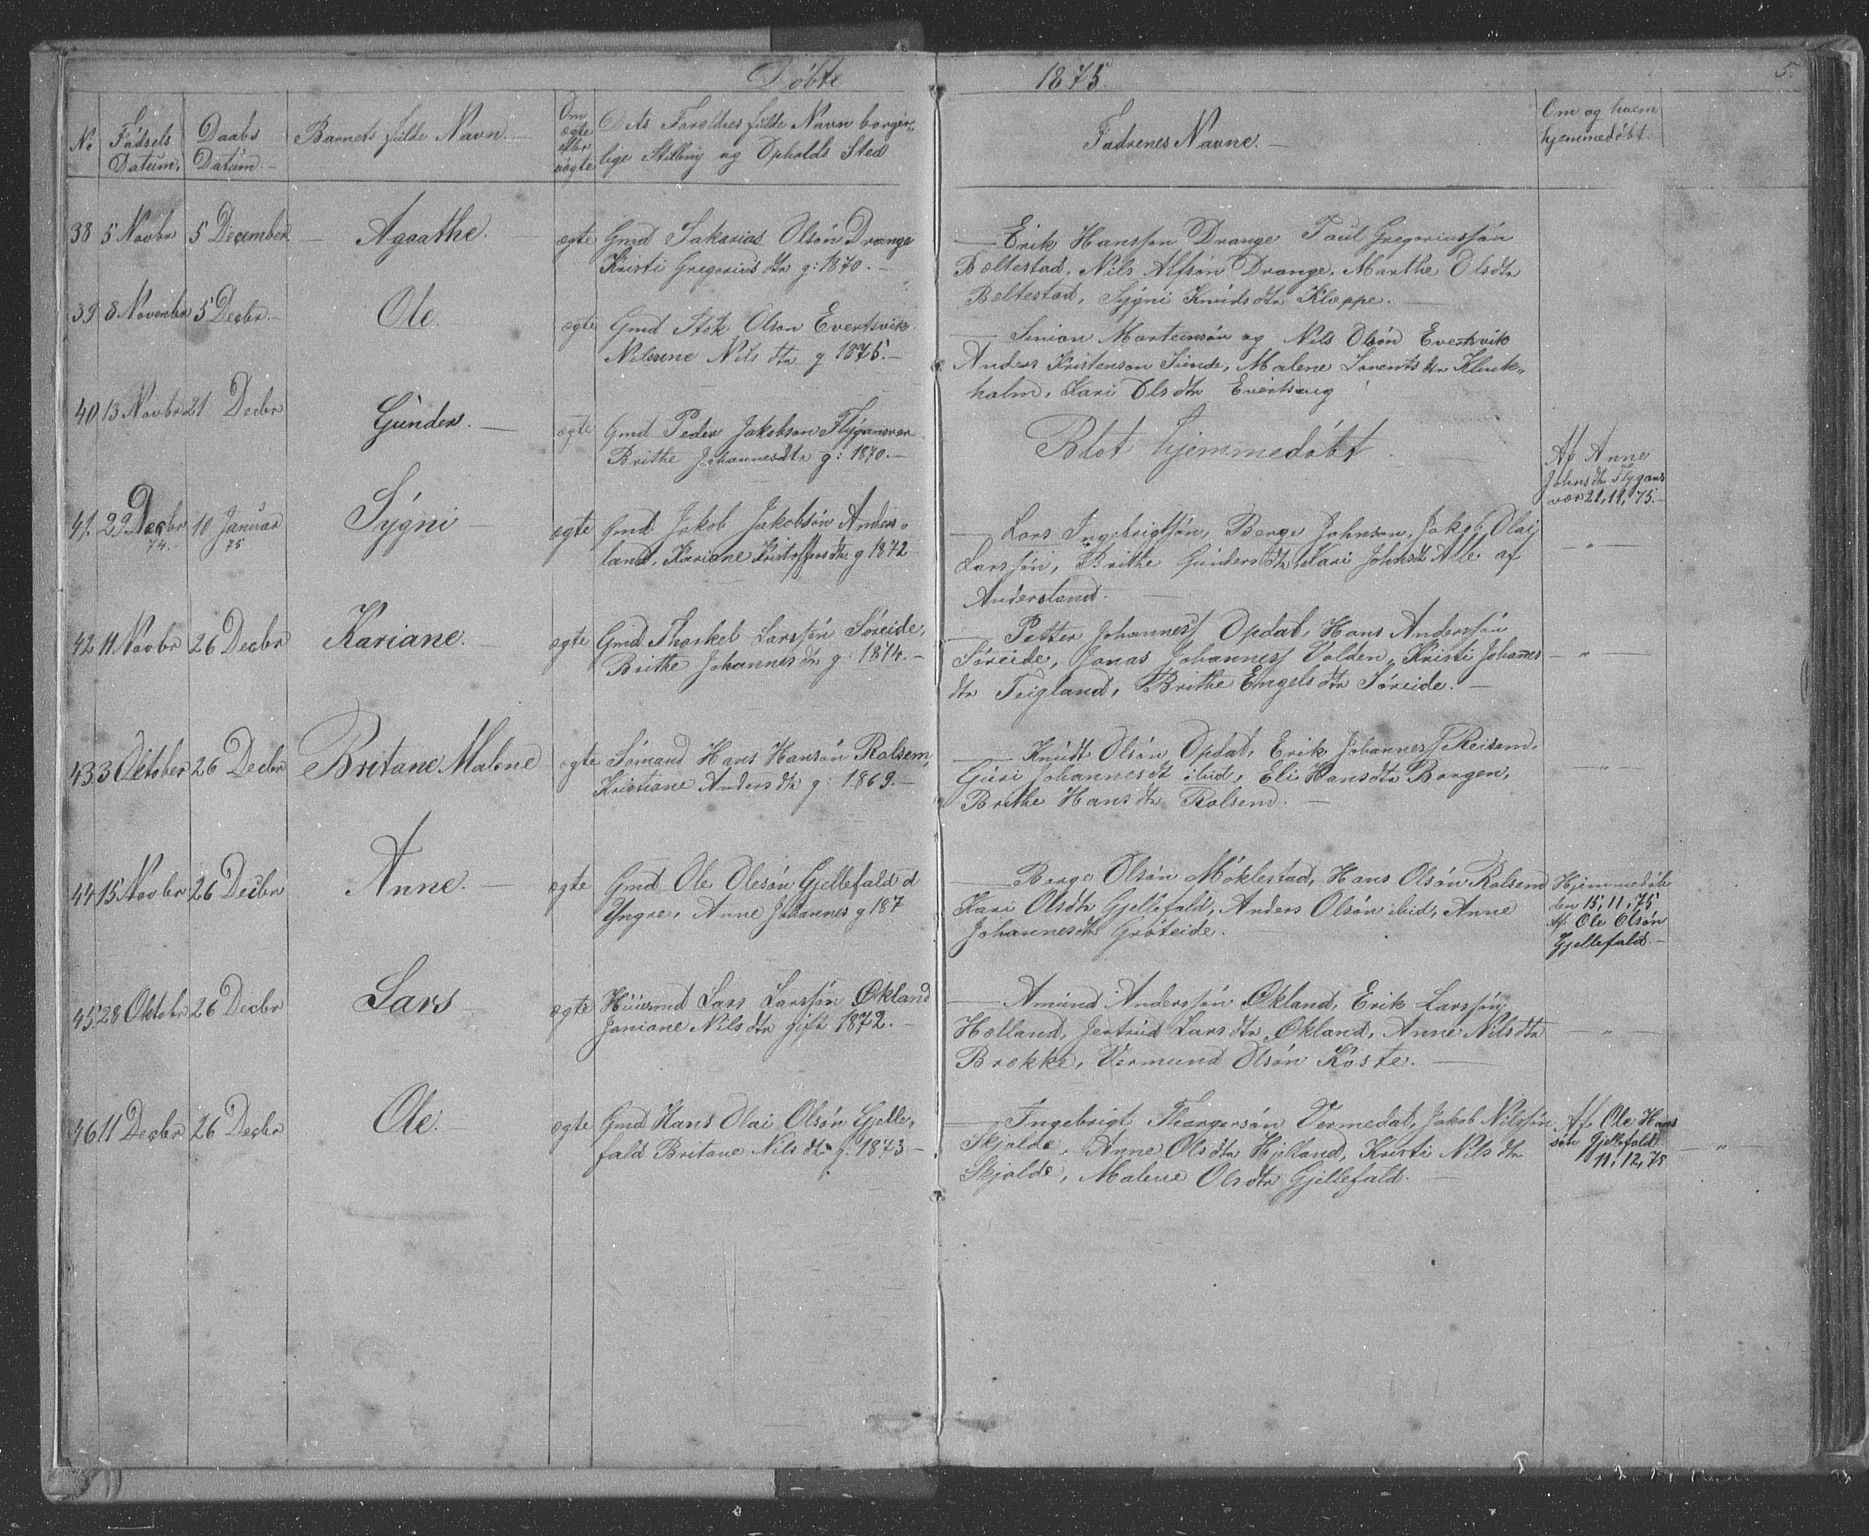 Döbte 1875. 5.
No Födsels Datum. Daabs Datum. Barnets fulde Navn. Om ægte eller uægte Dets Foreldres fulde Navn borger-
lige Stilling og Opholds Sted Fadrenes Navne. Om og hvem hjemmedöbt.
38 5 Novbr 5 December Agaathe. ægte Gmd Sakarias Olsön Drange
Kristi Gregorius dtr g: 1870.
Erik Hanssön Drange Paul Gregoriussön
Beltestad, Nils Alfsön Drange, Marthe Olsdtr
Beltestad, Sygni Knudsdtr Kloppe.
39 8 Novembr 5 Decbr. Ole. ægte Gmd Stok Olson Evertsvik
Nilsine Nils dtr g 1875.
Simion Marteinsön og Nils Olsön Evertsvik
Anders Kristenson Siende, Malene Lorents dtr Klink-
holm, Kari Olsdtr Evertsvig
40 13 Novbr 21 Decbr Gunder. ægte Gmd Peder Jakobson Flyganvær
Brithe Johannesdtr g: 1870.
Blot hjemmedöbt.
Af Anne
Johns dtr Flygans
vær 21, 11, 75.
41. 29 Decbr 74. 10 Januar 75 Sygni ægte Gmd. Jakob Jakobsön Anders-
land, Kariane Kristoffersdtr g 1872
Lars Ingebrigtsön, Berge Johnson, Jakob Olai
Larssön, Brithe Gunders dtr, Kari Johnsdt Alle af
Andersland.
42 11 Novbr 26 Decbr Kariane. ægte Gmd Thorkel Larssön Söreide,
Brithe Johannes dtr g: 1874.
Petter Johanness Opdal, Hans Anderssön
Söreide, Jonas Johanness Valden, Kristi Johannes
dtr Teigland, Brithe Engels dtr Söreide.
43 3 Oktober 26 Decbr Britane Malene ægte Sömand Hans Hansön Rolsem,
Kristiane Anders dtr g: 1869.
Knudt Olsön Opdal, Erik Johanness Reisem.
Guri Johannesdt ibid, Eli Hans dtr Borgen,
Brithe Hans dtr Rolsend.
44 15 Novbr 26 Decbr Anne. ægte Gmd Ole Olesön Gjellefald d
Yngre, Anne Johannes g 187
Borge Olsön Möklestad, Hans Olsön Rolsend
Kari Olsdtr Gjellefald, Anders Olsön ibid, Anne
Johannesdtr Gröteide.
Hjemmedöb
den 15, 11, 75
Af Ole Olsön
Gjellefald.
45 28 Oktobr 26 Decbr Lars ægte Huusmd Lars Larssön Økland
Janiane Nils dtr gift 1872.
Amund Anderssön Økland, Erik Larssön
Holland, Jertrud Lars dtr Økland, Anne Nilsdtr
Brekke, Vermund Olsön Köste.
46 11 Decbr 26 Decbr Ole. ægte Gmd Hans Olai Olsön Gjelle,
fald Britane Nils dtr g: 1873
Ingebrigt Thorgersön Vermedal, Jakob Nilssön
Skjolde, Anne Olsdtr Hjelland, Kristi Nils dtr
Skjolde, Malene Olsdtr Gjellefald.
Af Ole Hans
sön Gjellefald
11, 12, 75